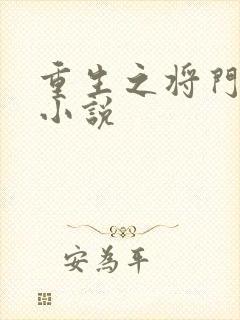 重生之将門
小說
安為平